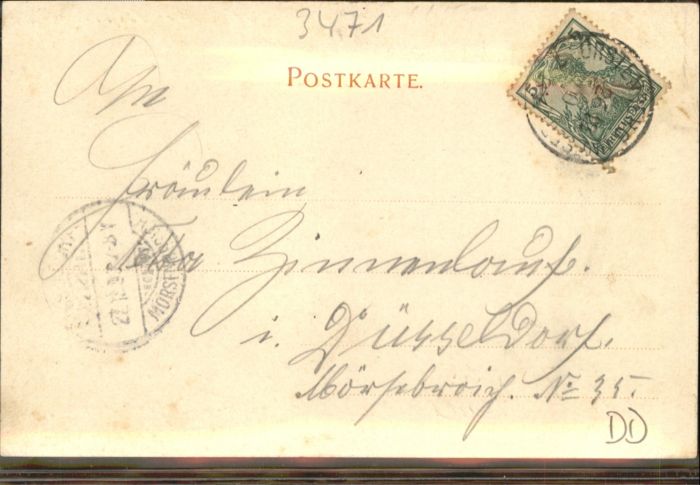 3471
POSTKARTE.
An
Fräulein
Zinnenlauf.
i. Düsseldorf.
Mörsebroich. № 35.
DD